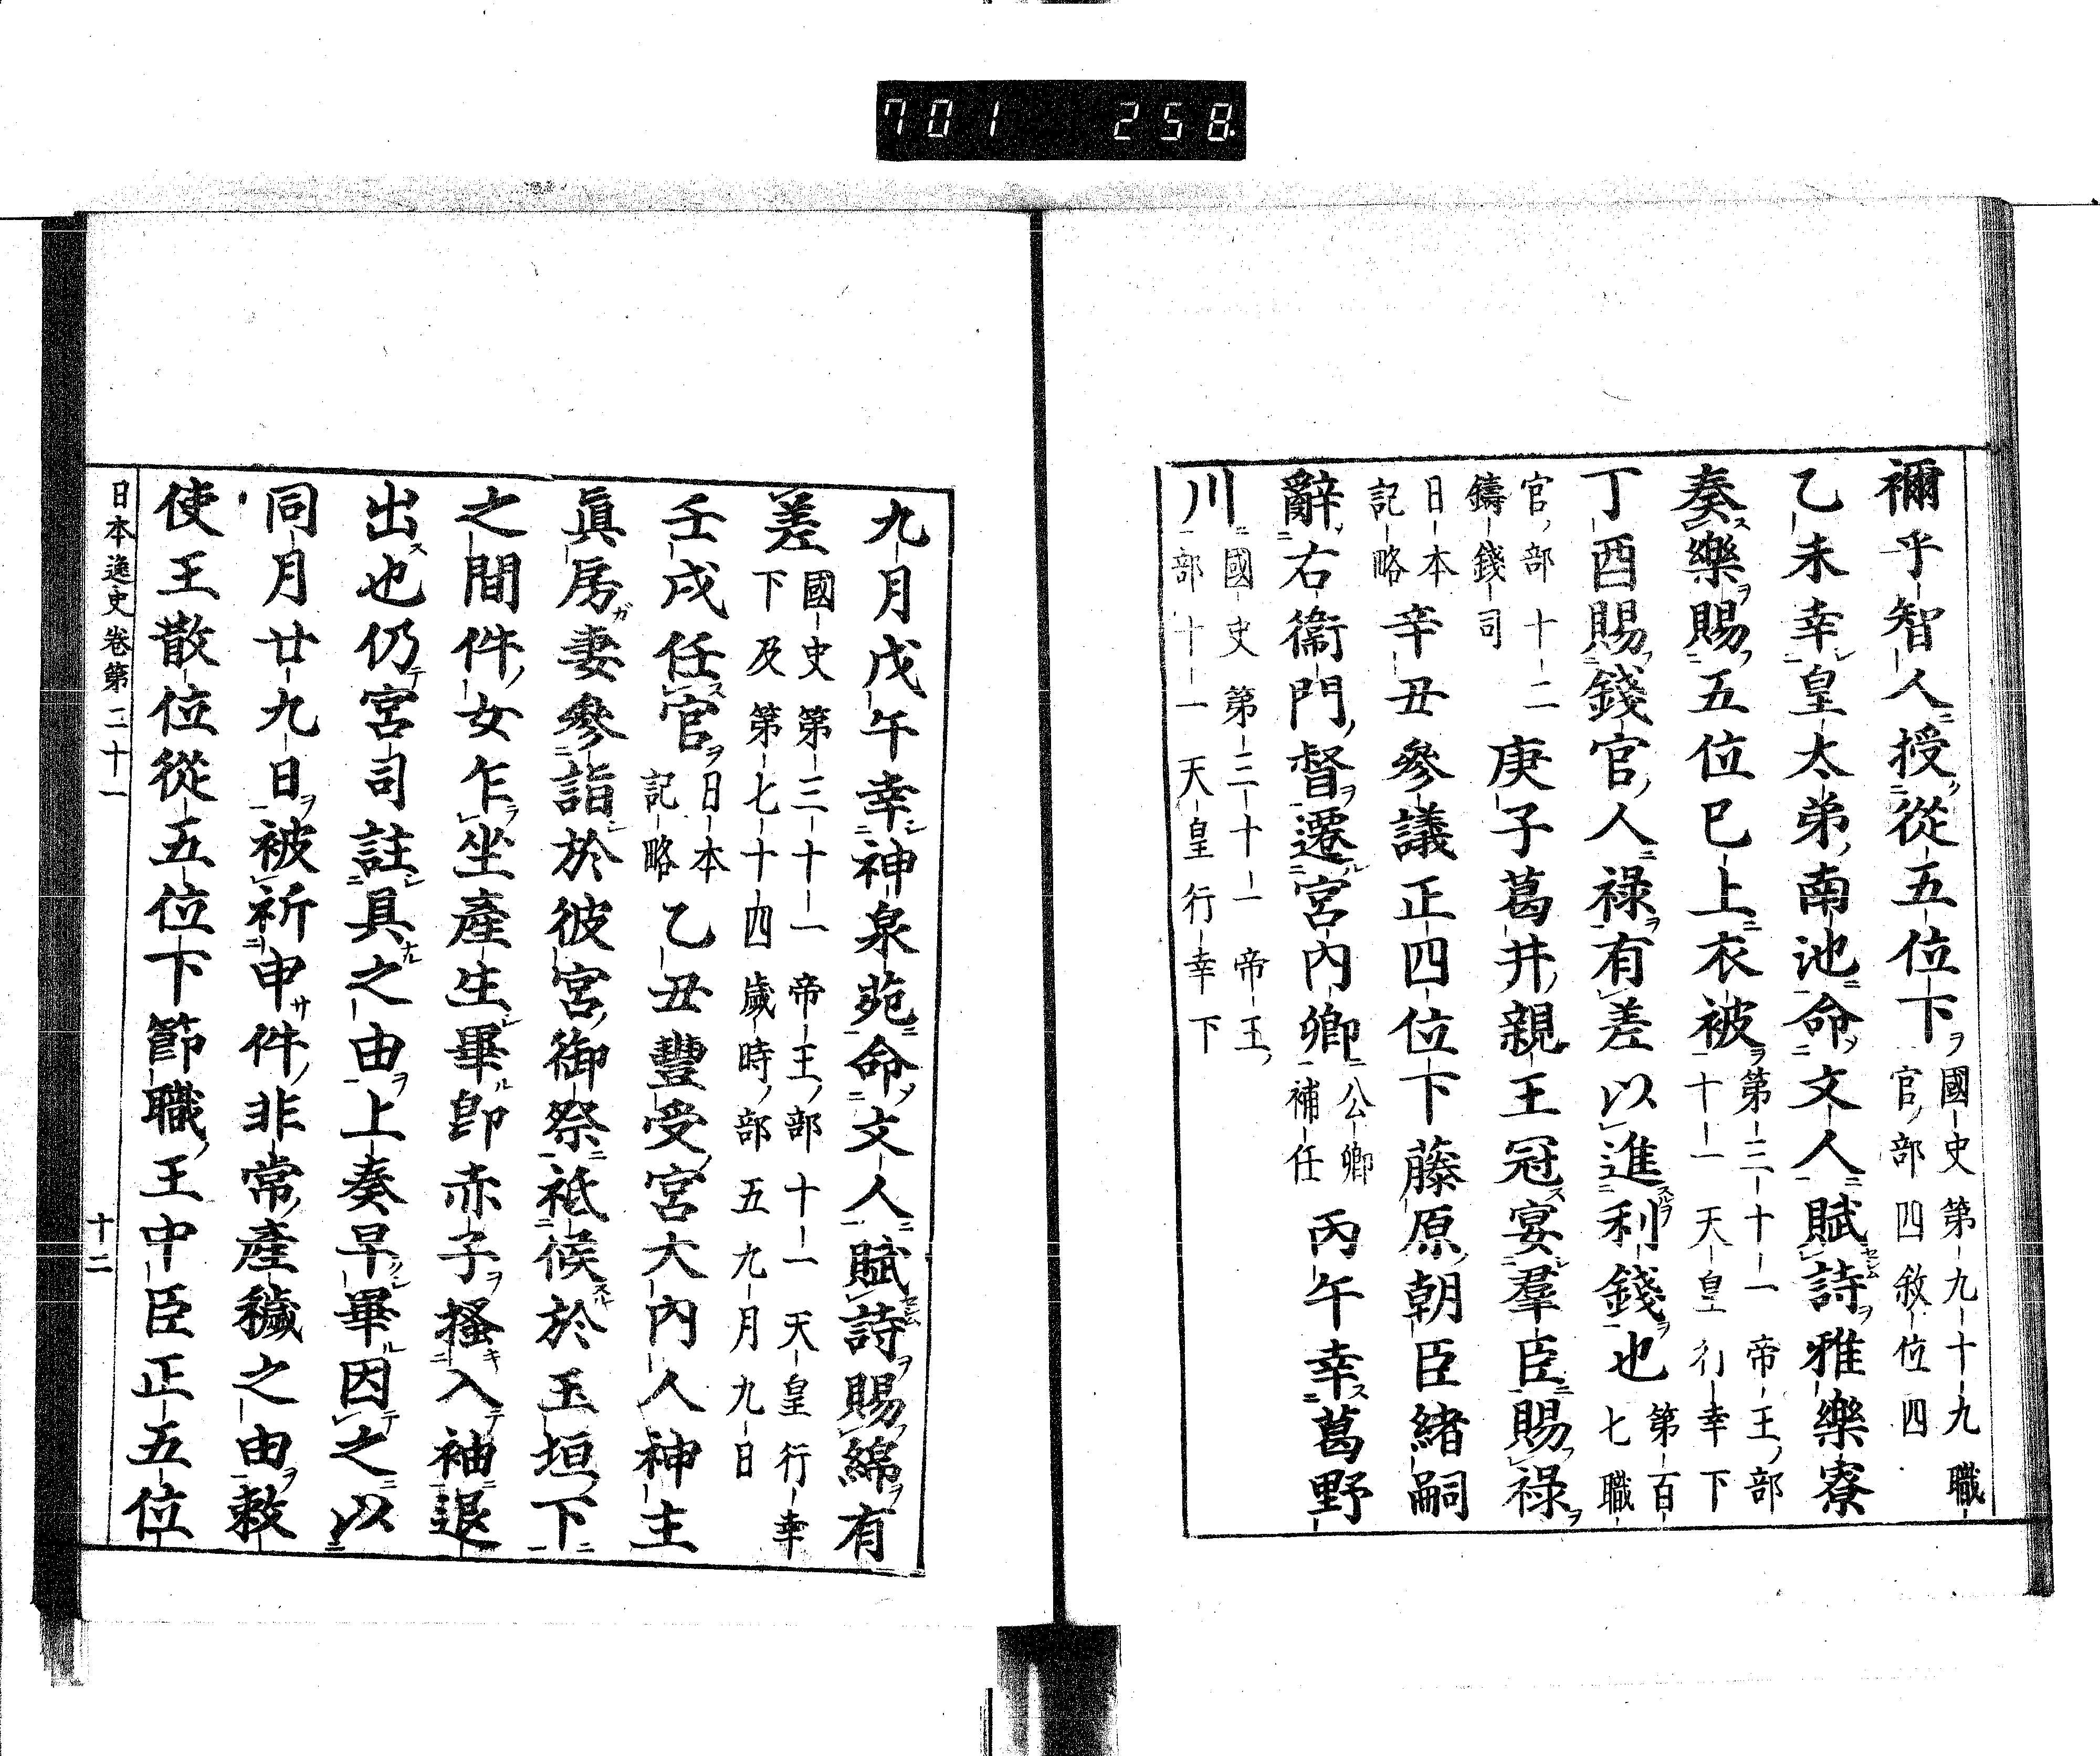 701 258
禰乎智人授從五位下國史第九十九職官部四敘位四
乙未幸皇太弟南池命文人賦詩雅樂寮
奏樂賜五位已上衣被第三十一帝王部十一天皇行幸下
丁酉賜錢官人祿有差以進利錢也第百七職
官部十二鑄錢司庚子葛井親王冠宴羣臣賜祿
日本記略辛丑參議正四位下藤原朝臣緒嗣
辭右衞門督遷宮內卿公卿補任丙午幸葛野
川國史第三十一帝王部十一天皇行幸下
九月戊午幸神泉苑命文人賦詩賜綿有
差國史第三十一帝王部十一天皇行幸下及第七十四歲時部五九月九日
壬戌任官日本記略乙丑豐受宮大內人神主
眞房妻參詣於彼宮御祭祗候於玉垣下
之間件女乍坐產生畢卽赤子搔入袖退
出也仍宮司註具之由上奏早畢因之以
同月廿九日被祈申件非常產穢之由敕
使王散位從五位下節職王中臣正五位
日本逸史卷第二十一 十二